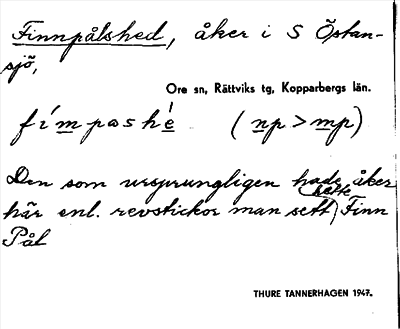 Finnpålshed, åker i S Östan-
sjö,
Ore sn, Rättviks tg, Kopparbergs län.
fímpashé (np > mp)
Den som ursprungligen hade åker
hette
här enl. revstickor man sett Finn
Pål
THURE TANNERHAGEN 1947.